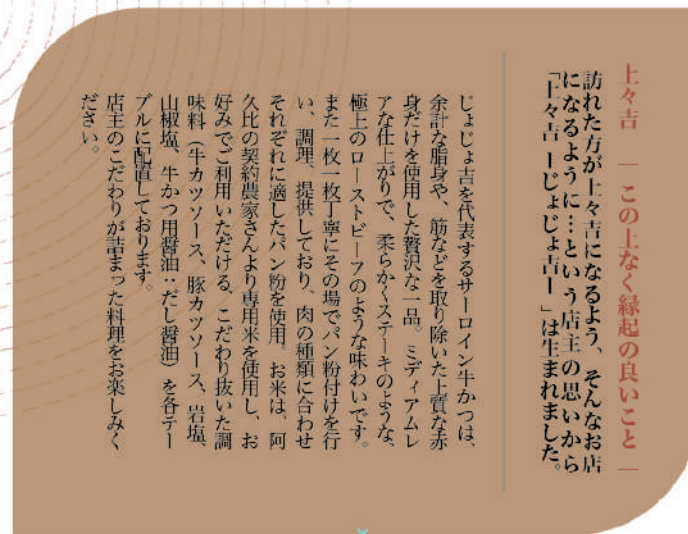 上々吉 ― この上なく縁起の良いこと ―
訪れた方が上々吉になるよう、そんなお店
になるように…という店主の思いから
「上々吉 ーじょじょ吉ー 」は生まれました。
じょじょ吉を代表するサーロイン牛かつは、
余計な脂身や、筋などを取り除いた上質な赤
身だけを使用した贅沢な一品。ミディアムレ
アな仕上がりで、柔らかくステーキのような、
極上のローストビーフのような味わいです。
また一枚一枚丁寧にその場でパン粉付けを行
い、調理、提供しており、肉の種類に合わせ
それぞれに適したパン粉を使用。お米は、阿
久比の契約農家さんより専用米を使用し、お
好みでご利用いただける、こだわり抜いた調
味料（牛カツソース、豚カツソース、岩塩、
山椒塩、牛かつ用醤油：だし醤油）を各テー
ブルに配置しております。
店主のこだわりが詰まった料理をお楽しみく
ださい。